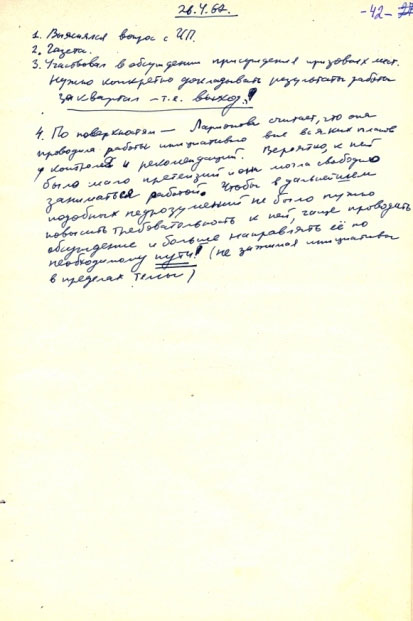 26.V.67.
-42-
1. Выяснялся вопрос с ЦП.
2. Газета.
3. Участвовал в обсуждении присуждения призовых мест.
Нужно конкретно докладывать результаты работы
за квартал – т.е. выход!
4. По поверхностям – Ларионова считает, что она
проводила работы инициативно вне всяких планов
и рекомендаций. Вероятно, к ней
было мало претензий и она могла свободно
заниматься работой. Чтобы в дальнейшем
подобных недоразумений не было нужно
повысить требовательность к ней, чаще проводить
обсуждение и больше направлять её по
необходимому пути! (не зажимая инициативы
в пределах темы)